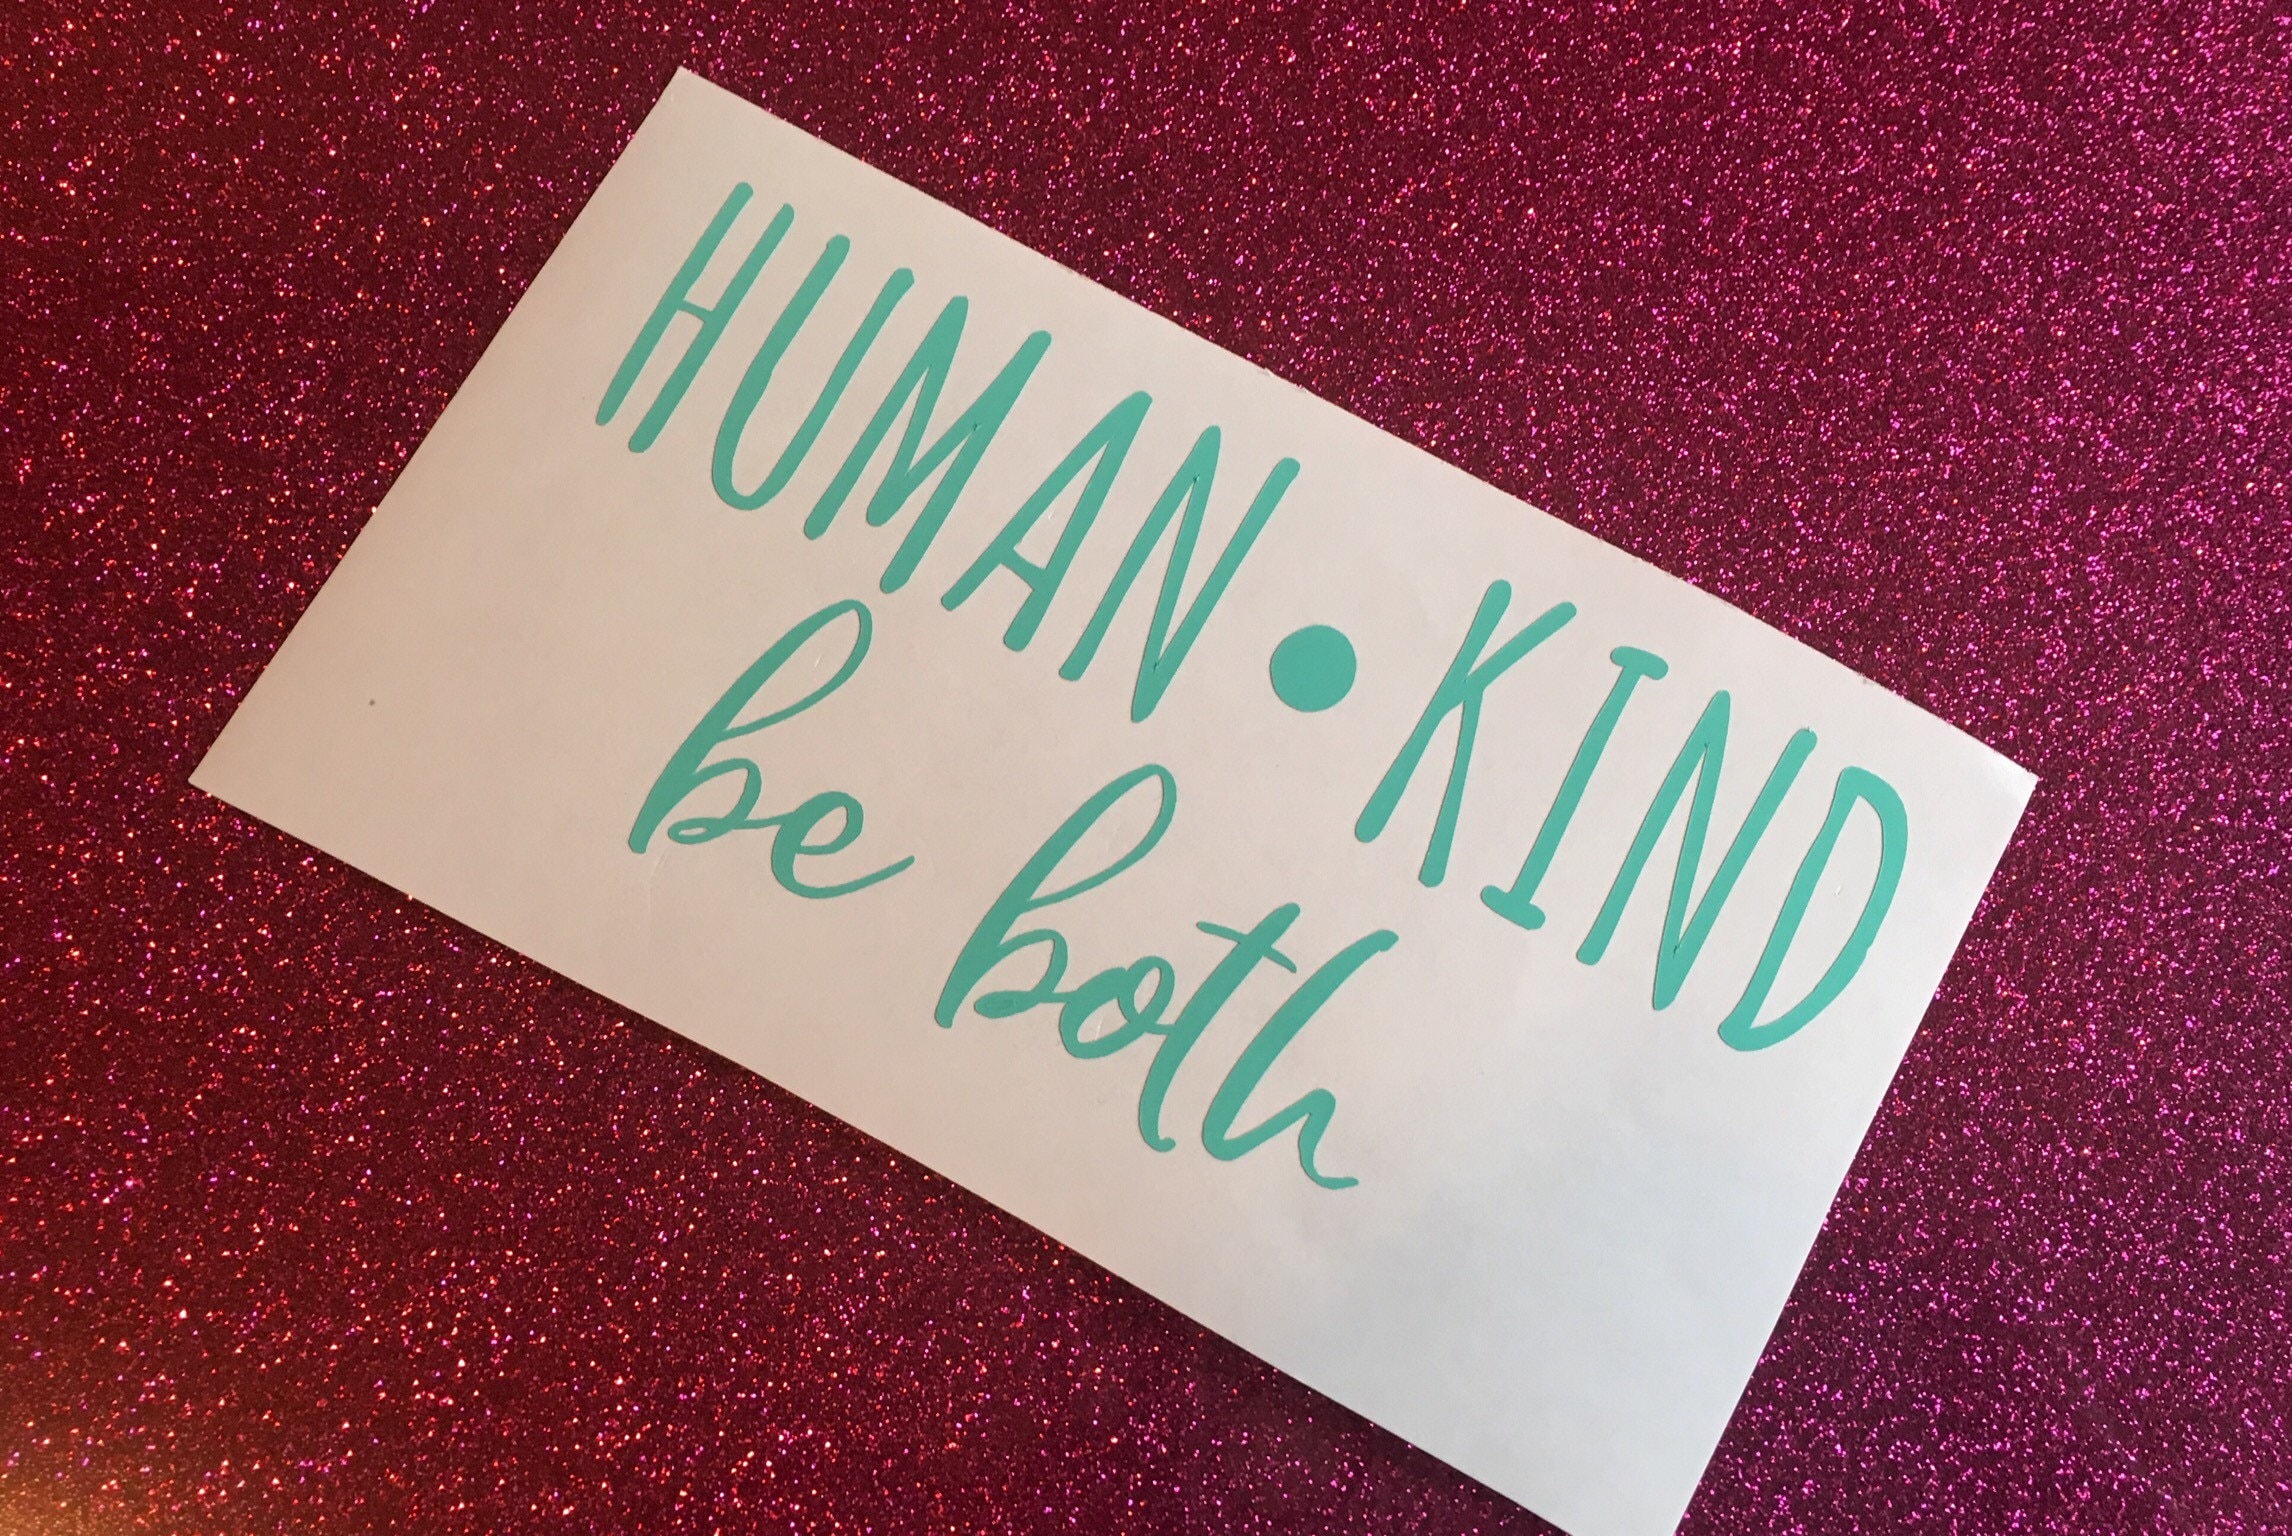 HUMAN•KIND
be both